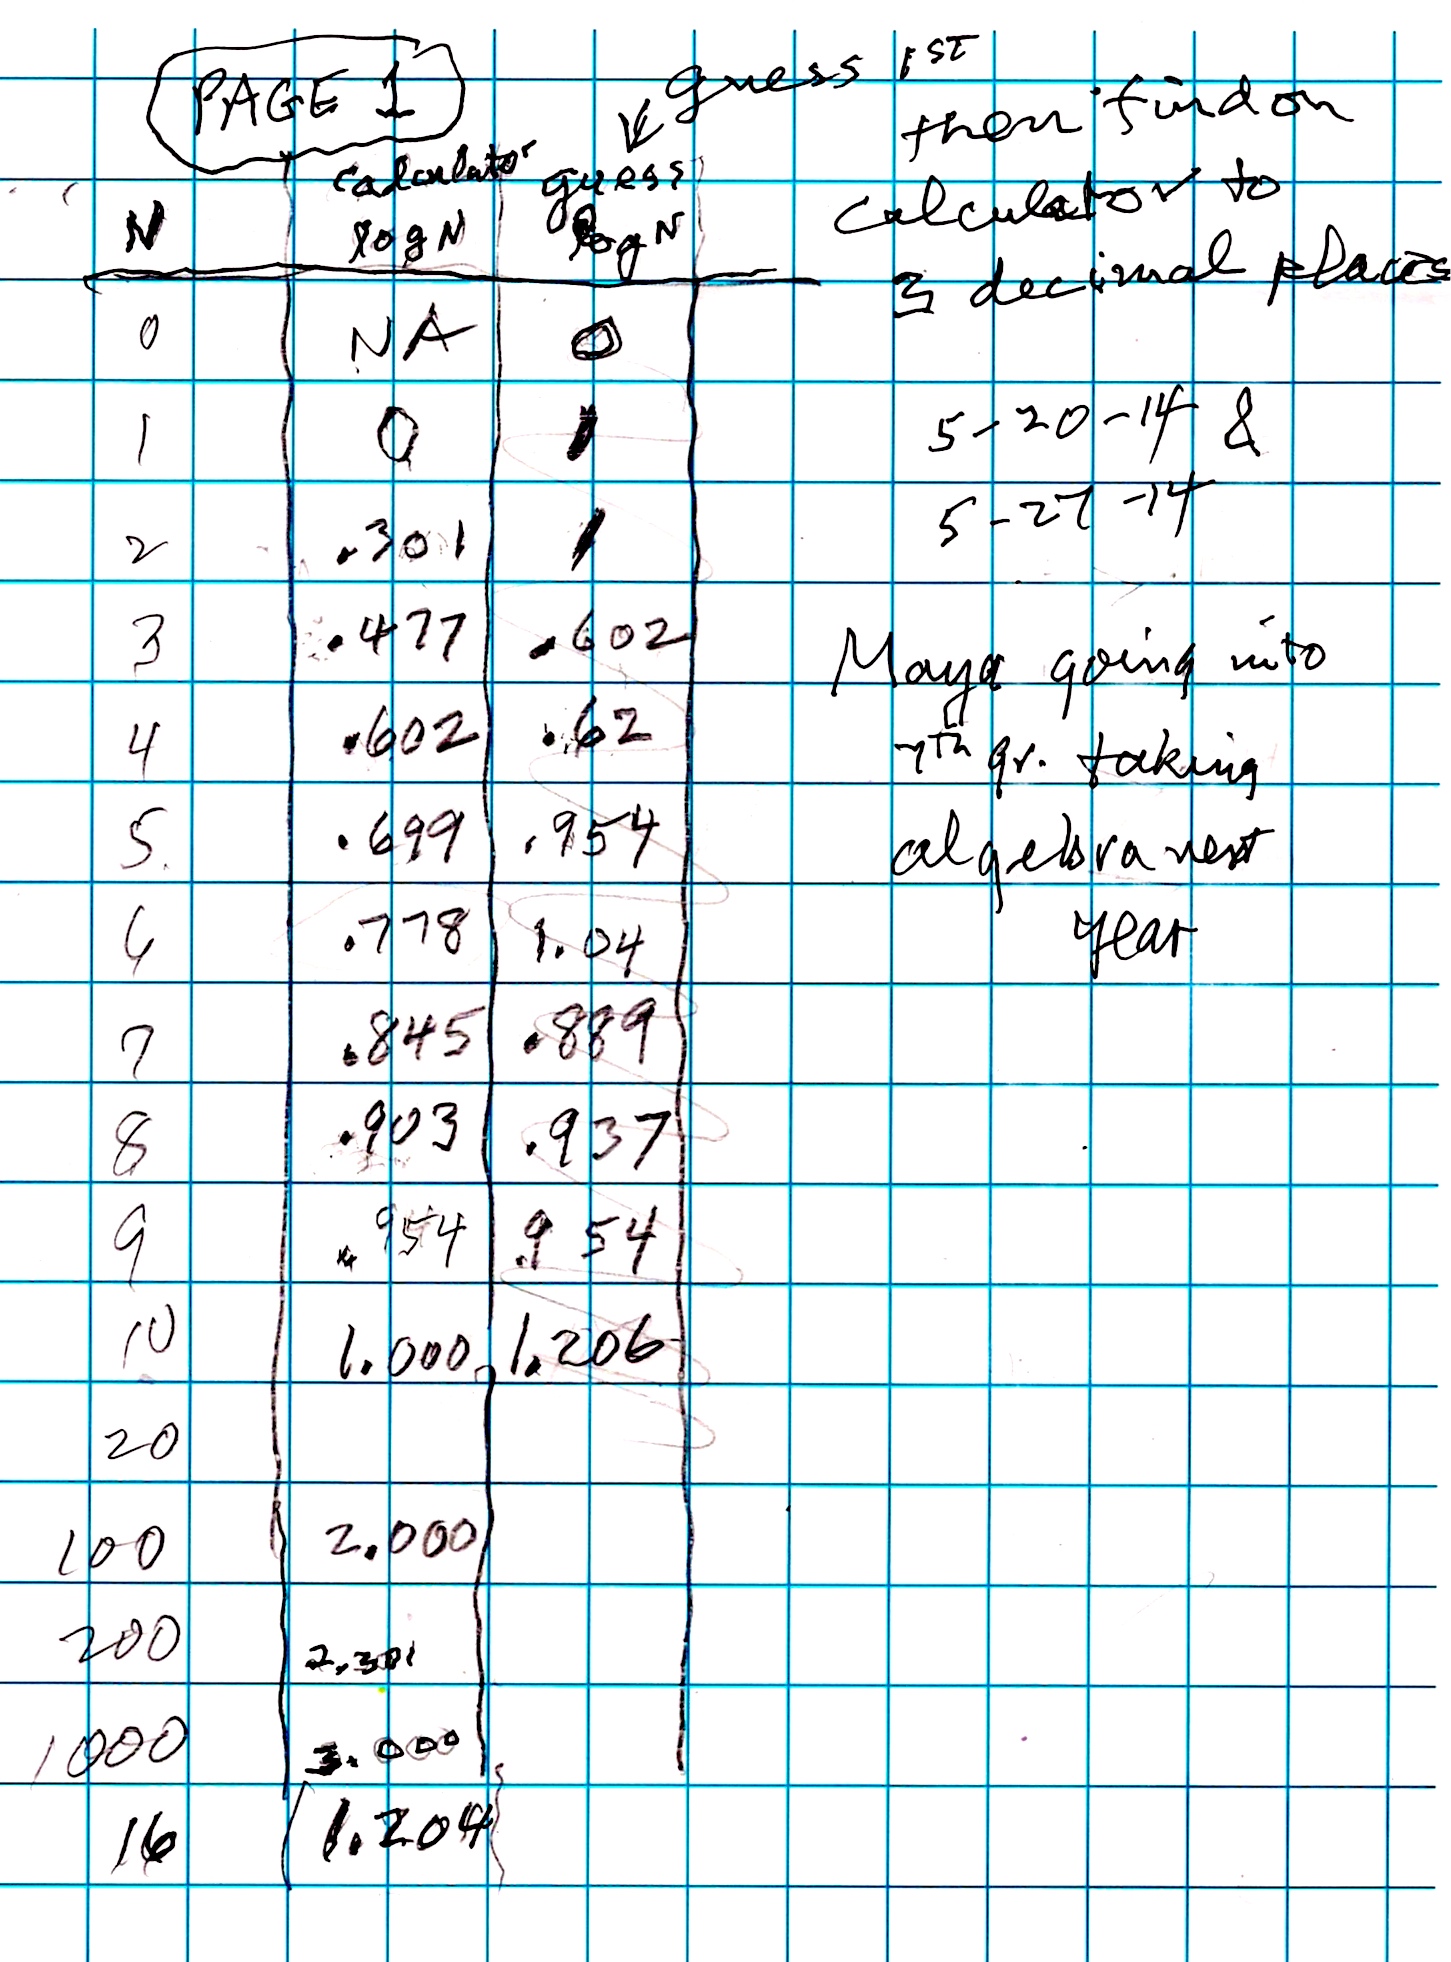 PAGE 1
guess 1ST
then find on
calculator to
3 decimal places
N calculator log N guess log N
0 NA 0
1 0 1
2 .301 1
3 .477 .602
4 .602 .62
5. .699 .954
6 .778 1.04
7 .845 .889
8 .903 .937
9 .954 .954
10 1.000 1.206
20
100 2.000
200 2.301
1000 3.000
16 1.204
5-20-14 &
5-27-14
Maya going into
7th gr. taking
algebra next
year